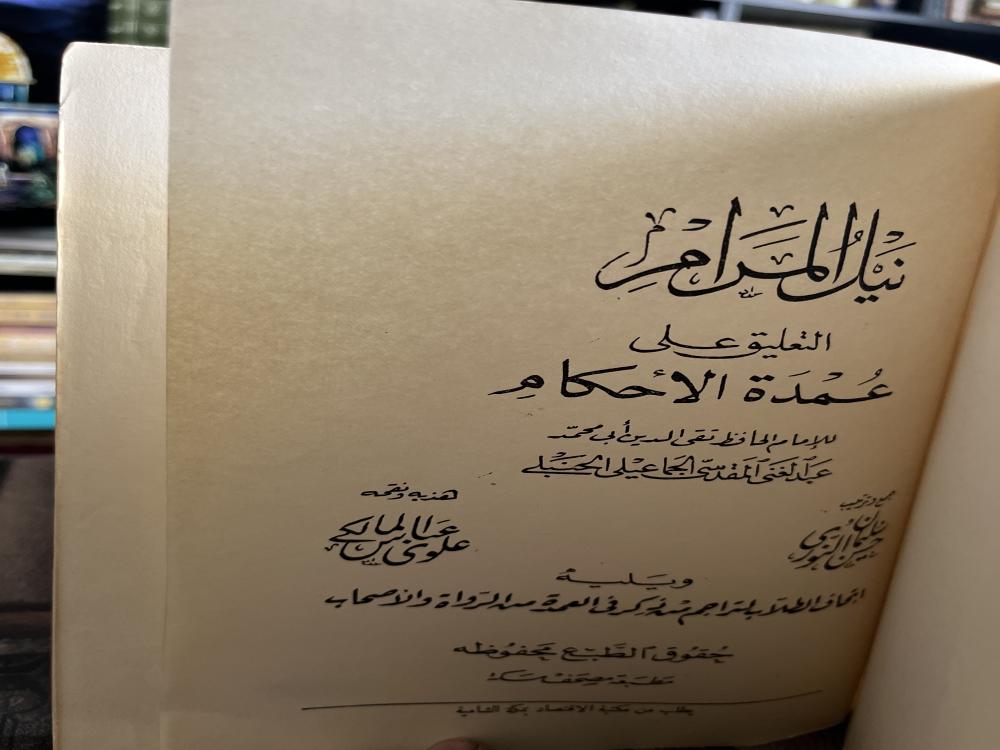 نَيْلُ المَرَامِ
التعليق على
عُمْدَة الأحكامِ
للإمام الحافظ تقي الدين أبي محمّد
عبد الغني المقدسيّ الجماعيلي الحنبلي
جمع وترتيب
هذبه ونقحه
حسن سليمان النوري
علوي عباس المالكي
ويليه
إتحاف الطلاب بتراجم من ذكر في العمدة من الرواة والأصحاب
حقوق الطبع محفوظه
يطلب من مكتبة الاقتصاد بمكة الشامية